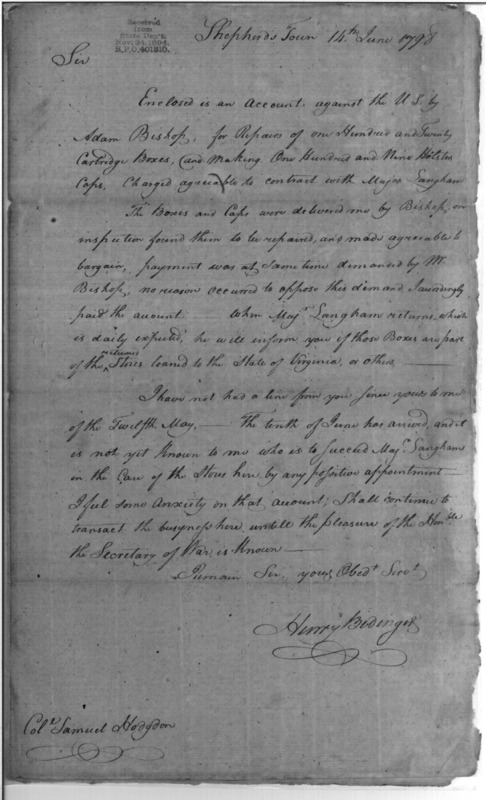 Received
from
State Dept.
Nov. 24, 1894.
R.P.O. 401810.
Shepherds Town 14th June 1798
Sir
Enclosed is an Account against the U.S. by
Adam Bishop, for Repairs of one Hundred and Twenty
Cartridge Boxes, (and Making One Hundred and Nine Holster
Caps, Charged agreeable to contract with Major Langham
The Boxes and Caps were delivered me by Bishop, on
inspection found them to be repaired, and made agreeable to
bargain, payment was at sametime demanded by Mr
Bishop, no reason occurred to oppose this demand
paid the amount When Majr Langham returns, which
is daily expected, he will inform you if those Boxes are part
of the returned Stores loaned to the State of Virginia, or others,
I have not had a line from you since yours to me
of the Twelfth May, The tenth of June has arrived, and it
is not yet Known to me who is to succeed Majr Langham
in the Care of the Stores here by any possitive appointment
I feel some Anxiety on that account; Shall continue to
transact the busyness here untill the pleasure of the Honble
the Secretary of War is Known
I Remain Sir, your Obedt Servt
Henry Bedinger
Colo Samuel Hodgdon